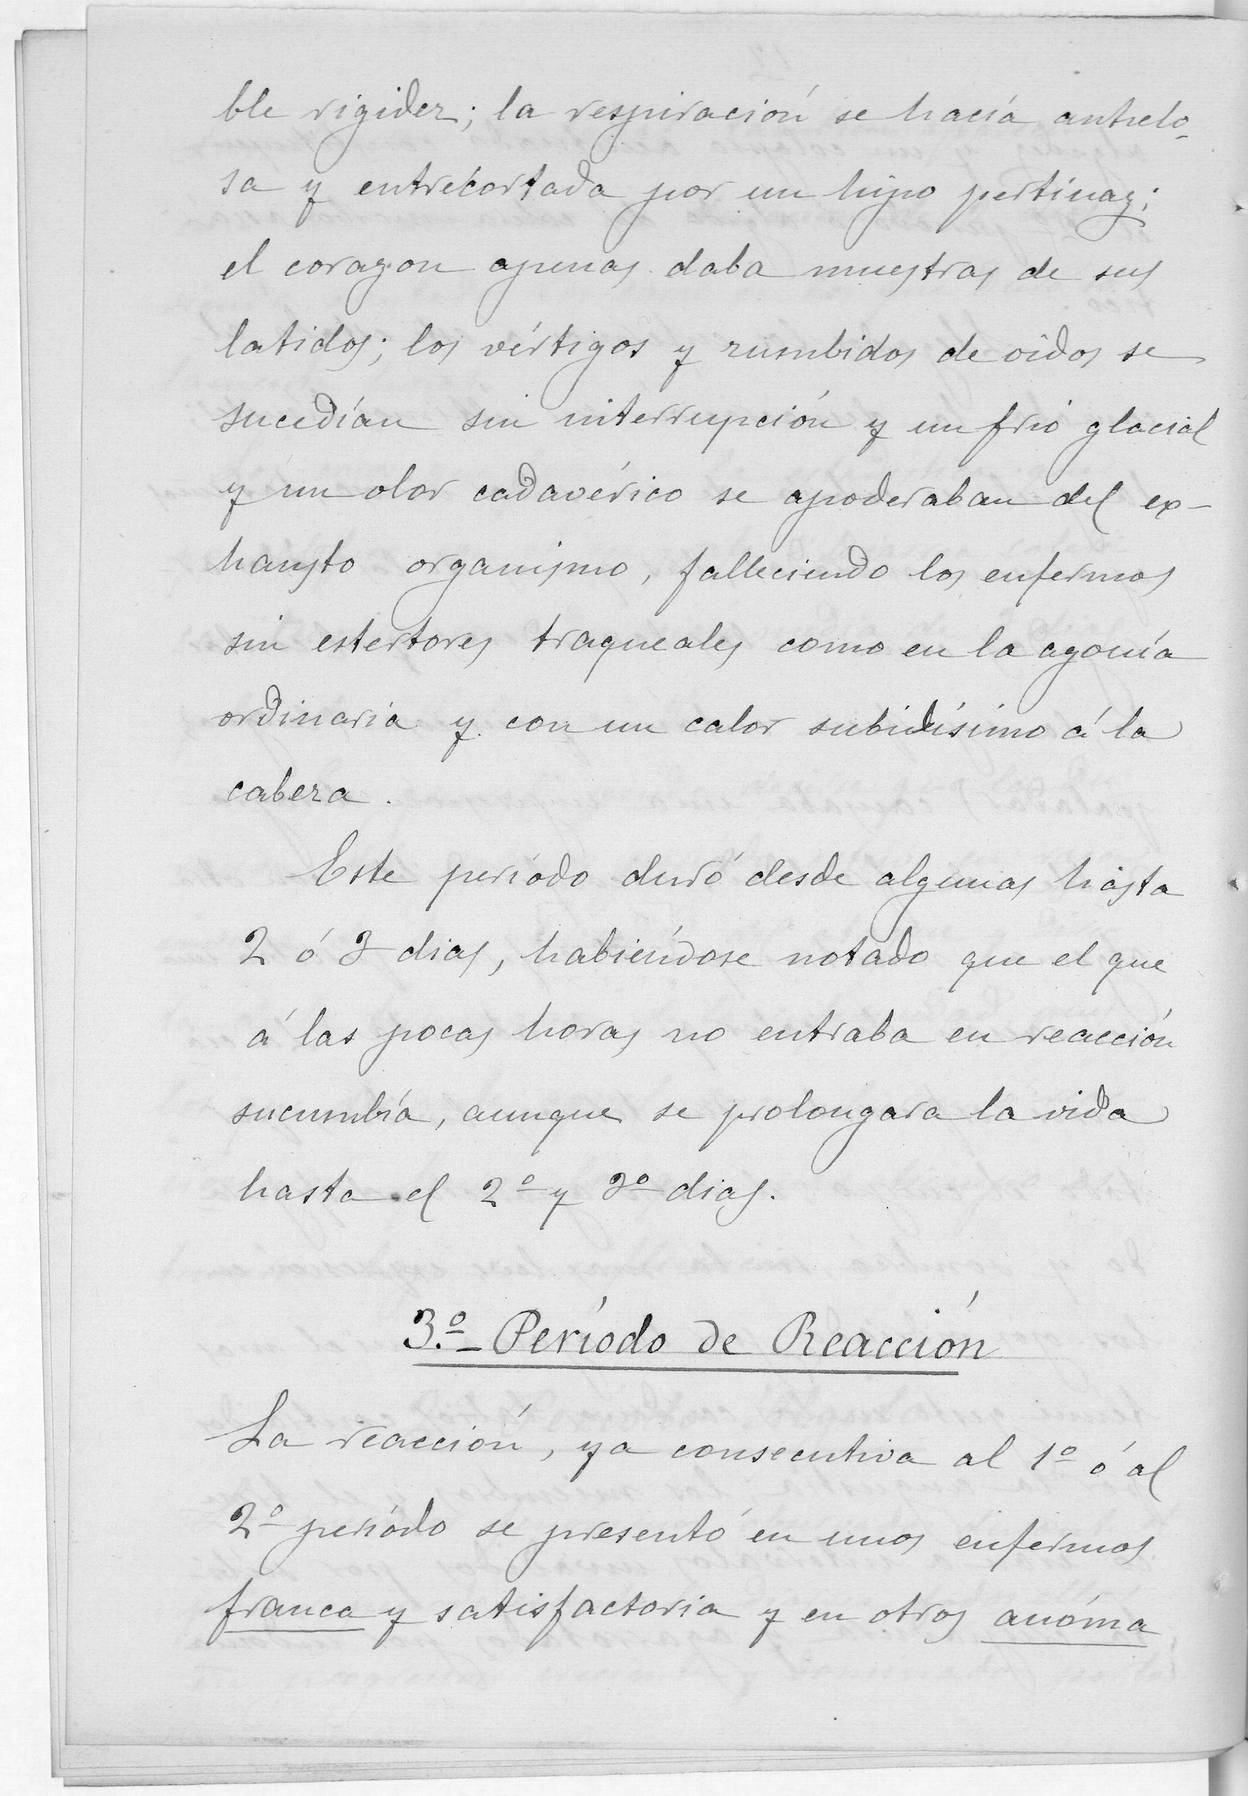 ble rigidez; la respiración se hacía anhelo-
sa y entrecortada por un hipo pertinaz;
el corazon apenas daba muestras de sus
latidos; los vértigos y zumbidos de oidos se
sucedían sin interrupción y un frió glacial
y un olor cadavérico se apoderaban del ex-
hausto organismo, falleciendo los enfermos
sin estertores traqueales como en la agonía
ordinaria y con un calor subidísimo á la
cabeza.
Este periódo duró desde algunas hasta
2 ó 3 dias, habiéndose notado que el que
á las pocas horas no entraba en reacción
sucumbía, aunque se prolongara la vida
hasta el 2º y 3º dias.
3.º - Período de Reacción
La reacción, ya consecutiva al 1º ó al
2º periódo se presentó en unos enfermos
franca y satisfactoria y en otros anóma